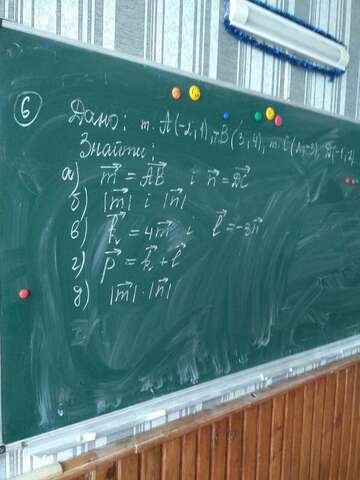 6
Дано: т. A(-2; 1), т. B(3; 4), т. C(2; -3), Д(-1; 2)
Знайти:
а) m⃗ = AB⃗ і n⃗ = ДC⃗
б) |m⃗| і |n⃗|
в) k⃗ = 4m⃗ і l⃗ = -3n⃗
г) p⃗ = k⃗ + l⃗
д) |m⃗| · |n⃗|